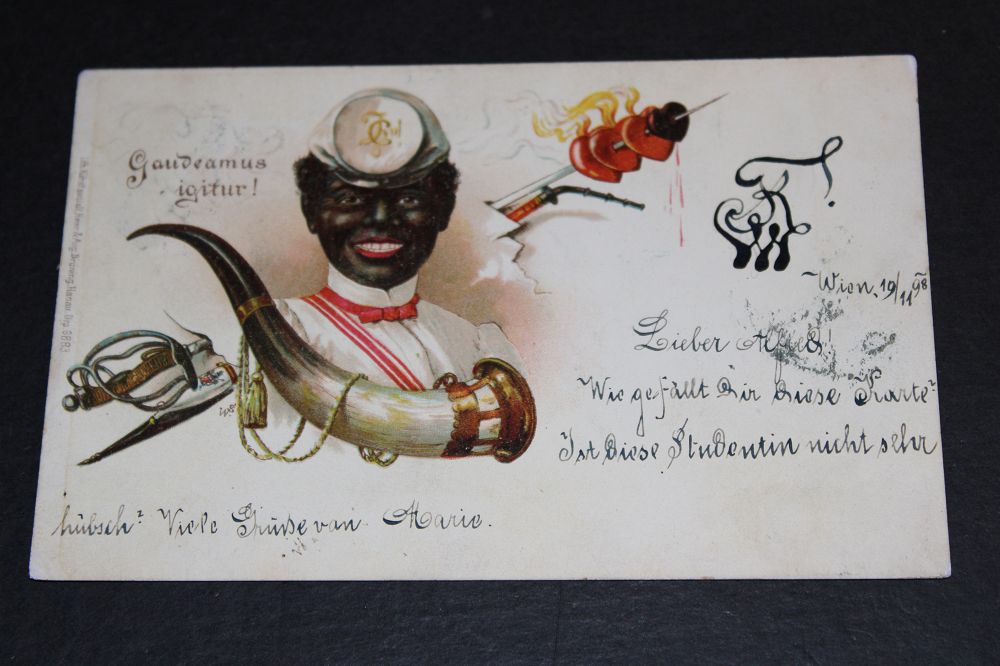 Gaudeamus
igitur!
Wien, 19/11 98
Lieber Alfred!
Wie gefällt Dir diese Karte?
Ist diese Studentin nicht sehr
hübsch? Viele Grüße von Marie.
Hanau Dep. 6883